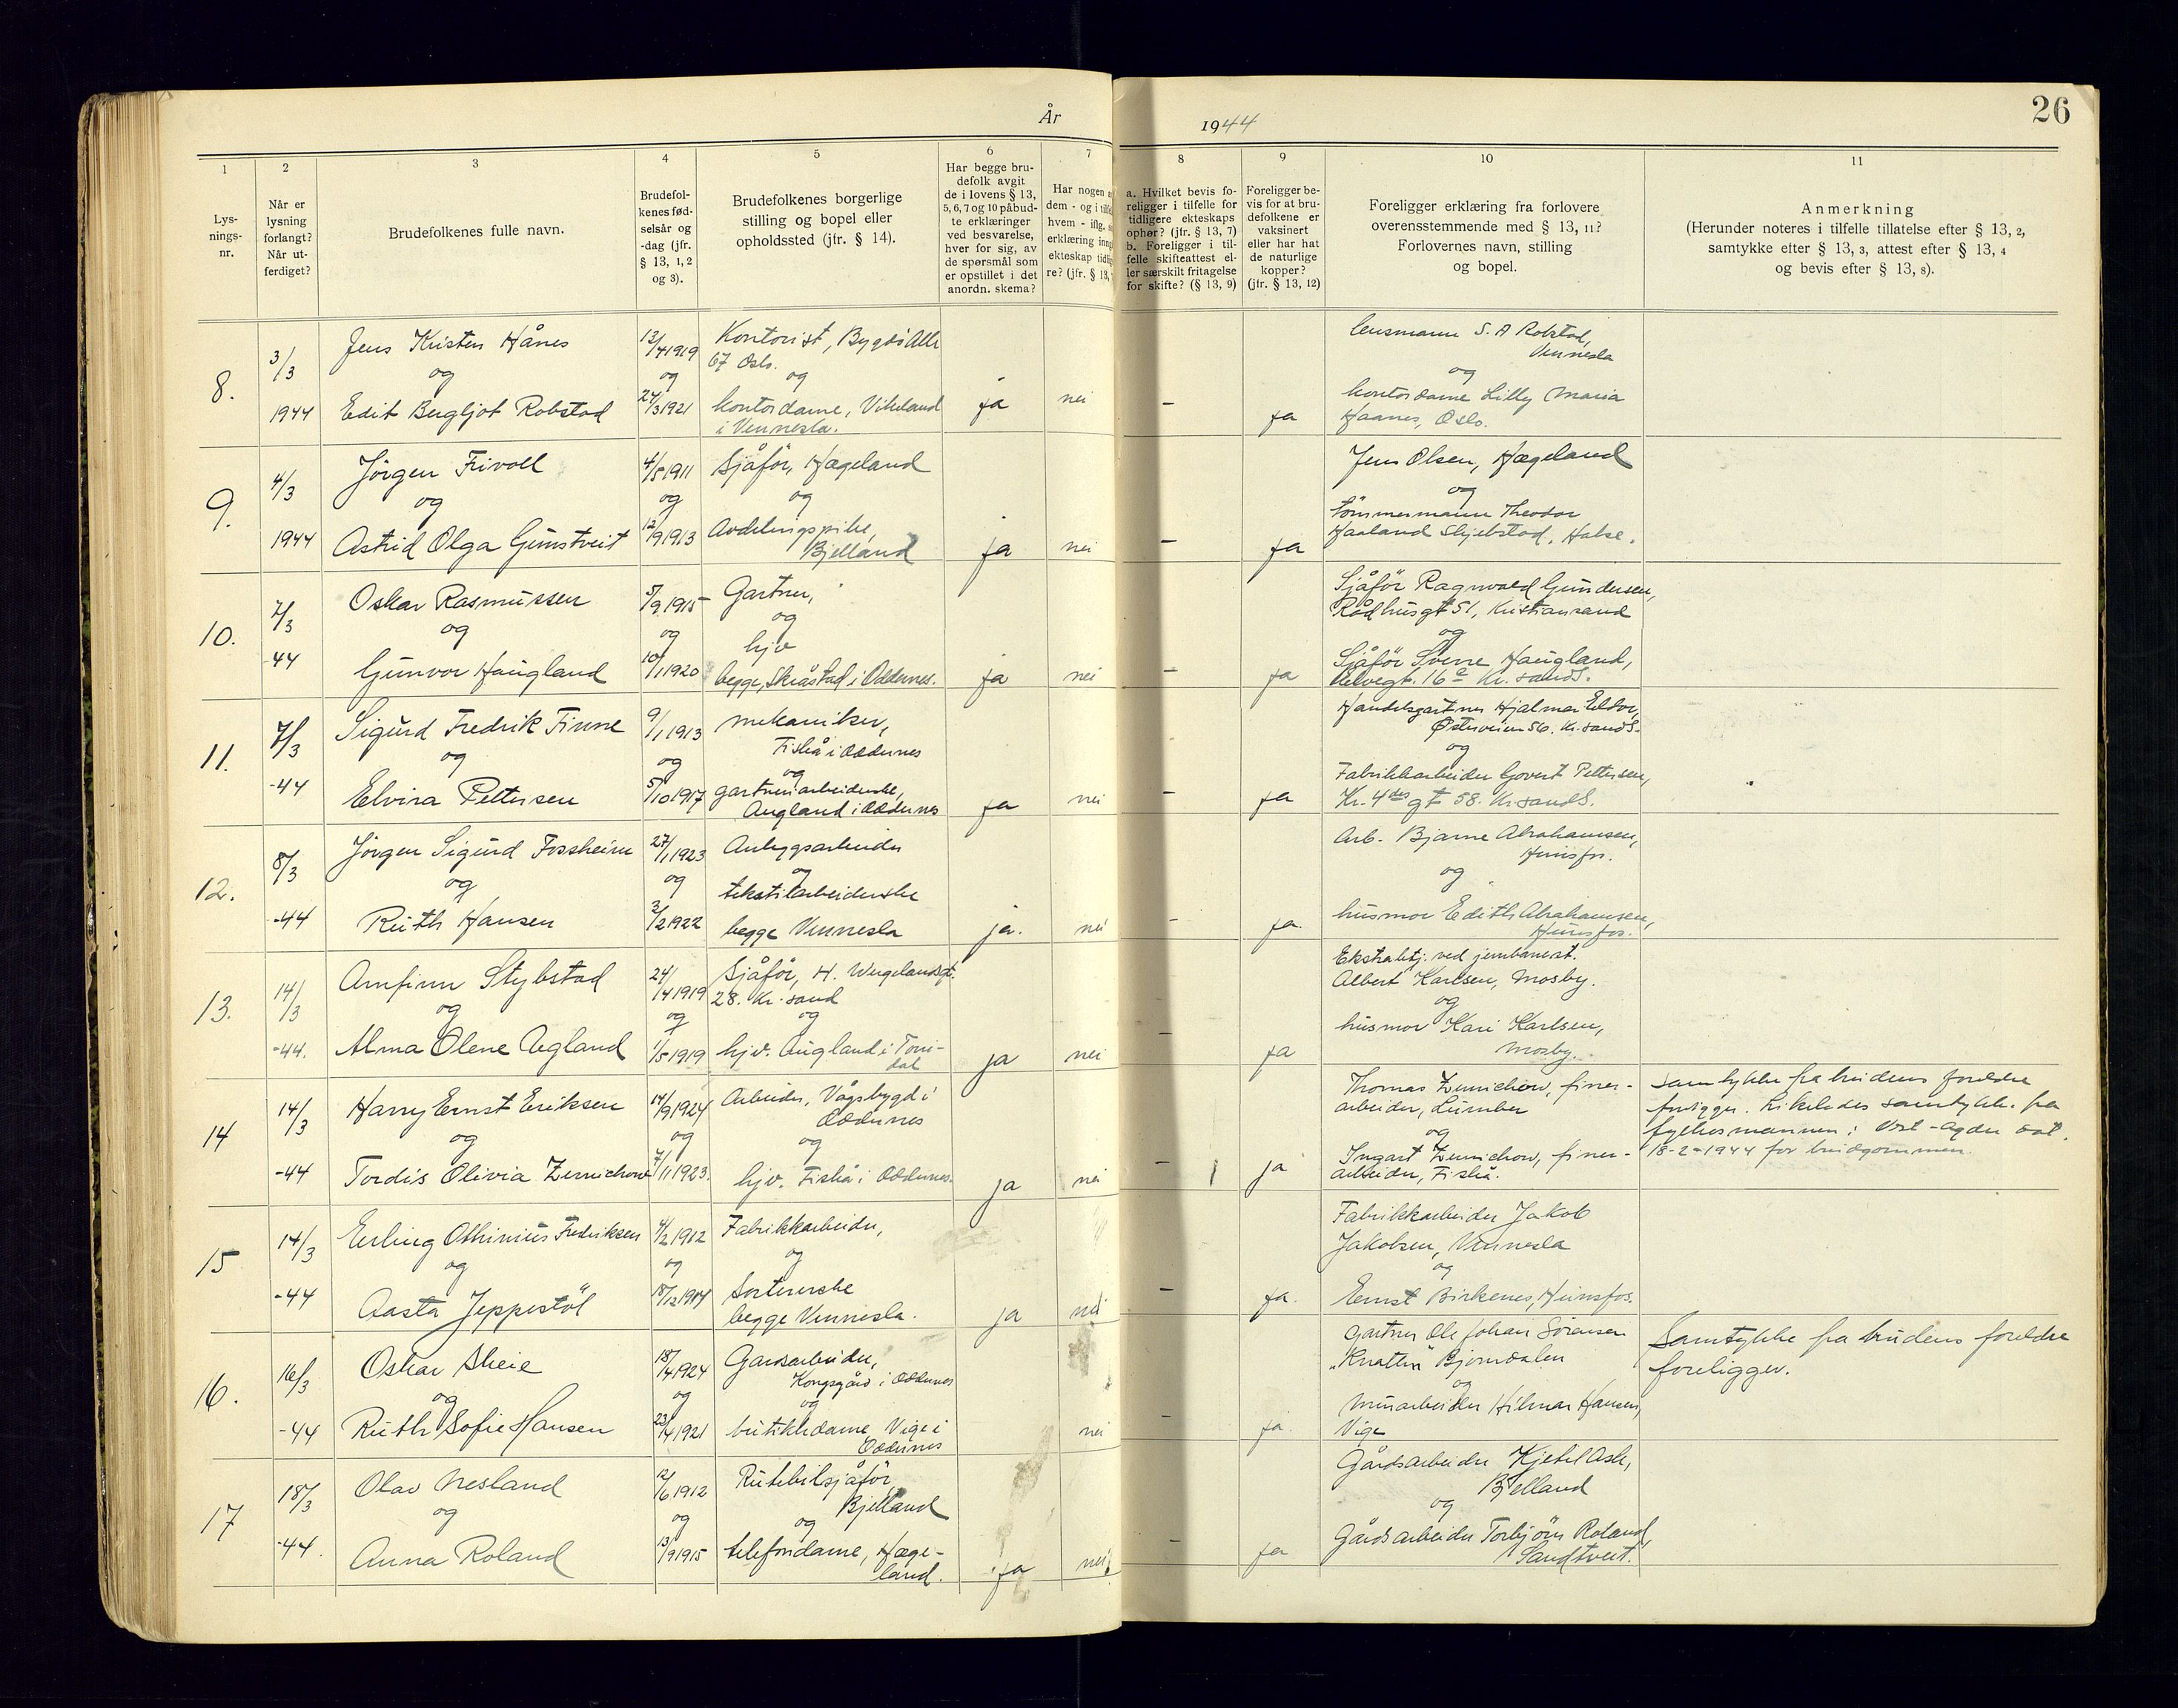 26
År
1944
1
2
3
4
5
6
7
8
9
10
11
Lys-
nings-
nr.
Når er
lysning
forlangt?
Når ut-
ferdiget?
Brudefolkenes fulle navn.
Brudefol-
kenes fød-
selsår og
-dag (jfr.
§ 13, 1, 2
og 3).
Brudefolkenes borgerlige
stilling og bopel eller
opholdssted (jfr. § 14).
Har begge bru-
defolk avgit
de i lovens § 13,
5, 6, 7 og 10 påbud-
te erklæringer
ved besvarelse,
hver for sig, av
de spørsmål som
er opstillet i det
anordn. skema?
Har nogen
dem - og i
hvem - iflg.
erklæring
ekteskap
re? (jfr. § 13,
a. Hvilket bevis fo-
religger i tilfelle for
tidligere ekteskaps
ophør? (jfr. § 13, 7)
b. Foreligger i til-
felle skifteattest el-
ler særskilt fritagelse
for skifte? (§ 13, 9)
Foreligger be-
vis for at bru-
defolkene er
vaksinert
eller har hat
de naturlige
kopper?
(jfr. § 13, 12)
Foreligger erklæring fra forlovere
overensstemmende med § 13, 11?
Forlovernes navn, stilling
og bopel.
Anmerkning
(Herunder noteres i tilfelle tillatelse efter § 13, 2,
samtykke efter § 13, 3, attest efter § 13, 4
og bevis efter § 13, 8).
8.
3/3
1944
Jens Kristen Hånes
og
Edit Bergljot Robstad
12/4 1919
og
24/3 1921
Kontorist, Bygdö Alle
67 Oslo.
og
kontordame, Vikeland
i Vennesla.
ja
nei
–
ja
lensmann S. A Robstad,
Vennesla
og
kontordame Lilly Maria
Haanes, Oslo.
9.
4/3
1944
Jörgen Frivoll
og
Astrid Olga Gumstveit
4/5 1911
og
12/9 1913
Sjåför, Hægeland
og
Avdelingspike,
Bjelland
ja
nei
–
ja
Jens Olsen, Hægeland
og
tömmermann Theodor
Haaland Skjebstad, Halse.
10.
7/3
-44
Oskar Rasmussen
og
Gunvor Haugland
5/9 1915
og
10/1 1920
Gartner,
og
hjv
begge, Skråstad i Oddernes.
ja
nei
–
ja
Sjåför Ragnvald Gundersen,
Rådhusgt 51, Kristiansand
og
Sjåför Sverre Haugland,
Elvegt. 16a Kr. sand S.
11.
7/3
-44
Sigurd Fredrik Finne
og
Elvira Pettersen
9/1 1913
og
5/10 1917
mekaniker,
Fiskå i Oddernes
og
gartneriarbeiderske,
Augland i Oddernes
ja
nei
–
ja
Handelsgartner Hjalmar Eldor,
Østerveien 56. Kr. sand S.
og
Fabrikkarbeider Govert Pettersen,
Kr. 4des gt 58. Kr. sand S.
12.
8/3
-44
Jörgen Sigurd Fossheim
og
Ruth Hansen
27/1 1923
og
3/2 1922
Anleggsarbeider
og
tekstilarbeiderske
begge Vennesla
ja.
nei
–
ja.
Arb. Bjarne Abrahamsen,
Hunsfos.
og
husmor Edith Abrahamsen,
Hunsfos.
13.
14/3
-44.
Arnfinn Stylestad
og
Alma Olene Aagland
24/4 1919
og
1/5 1919
Sjåför, H. Wergelandsgt.
28. Kr. sand
og
hjv. Augland i Tveit-
dal
ja
nei
–
ja
Ekstrabetj. ved jernbanest.
Albert Karlsen, Mosby.
og
husmor Kari Karlsen,
Mosby.
14
14/3
-44
Harry Ernst Eriksen
og
Tordis Olivia Zernichow
14/9 1924
og
7/11 1923.
Arbeider, Vågsbygd i
Oddernes
og
hjv. Fiskå i Oddernes.
ja
nei
–
ja
Thomas Zernichow, finer-
arbeider, Lumber
og
Ingart Zernichow, finer-
arbeider, Fiskå.
Samtykke fra brudens foreldre
foreligger. Likeledes samtykke fra
fylkesmannen i Vest-Agder dat.
18-2-1944 for brudgommen.
15
14/3
-44
Erling Othinius Fredriksen
og
Aasta Jeppestöl
4/2 1912
og
18/12 1914
Fabrikkarbeider,
og
Sortererske
begge Vennesla.
ja
nei
–
ja.
Fabrikkarbeider Jakob
Jakobsen, Vennesla
og
Ernst Birkenes, Hunsfos.
16.
16/3
-44
Oskar Skeie
og
Ruth Sofie Hansen
18/4 1924
og
23/4 1921
Gardsarbeider,
Kongsgård i Oddernes
og
butikkdame, Vige i
Oddernes
nei
–
ja.
Gartner Ole Johan Sörensen
"Knatten" Bjorndalen
og
Murarbeider Hilmar Hansen,
Vige
Samtykke fra brudens foreldre
foreligger.
17
18/3
-44.
Olav Nesland
og
Anna Roland
12/6 1912
og
13/9 1915
Rutebilsjåför,
Bjelland
og
telefondame, Hæge-
land.
ja
nei
–
ja
Gårdsarbeider Kjetil Ask,
Bjelland
og
Gårdsarbeider Torbjörn Roland,
Sandtveit.